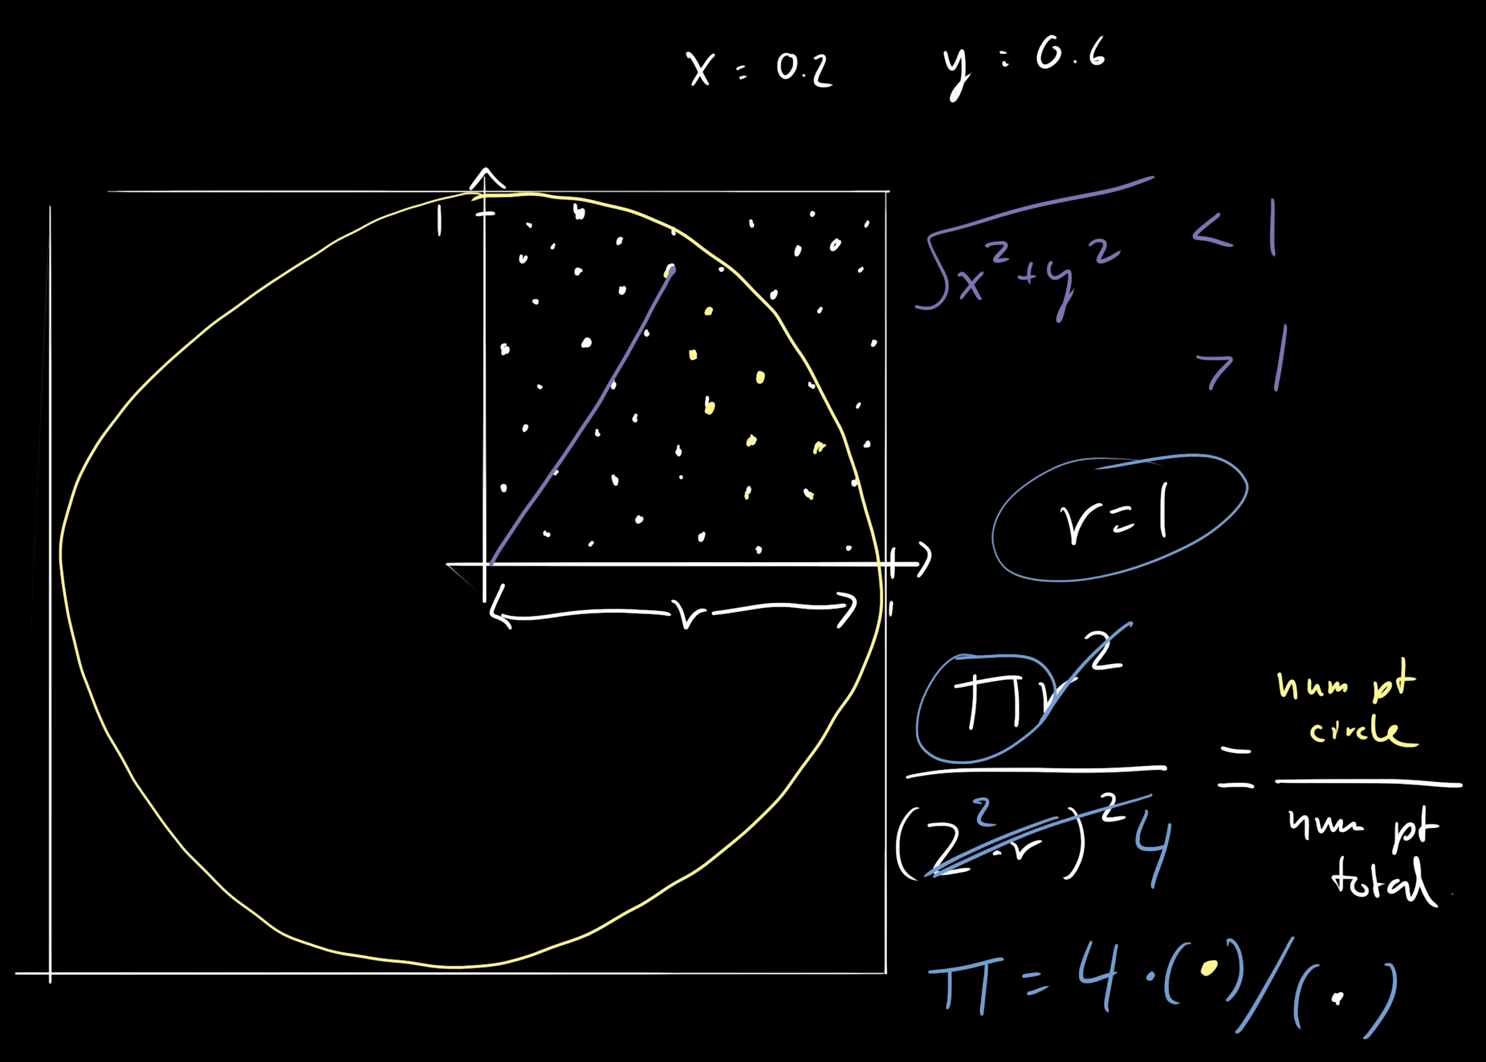 x = 0.2 y = 0.6
1
√x²+y² < 1
> 1
r = 1
r
1
πr²
(2²·r)² 4
=
num pt
circle
num pt
total
π = 4 · (•) / (•)